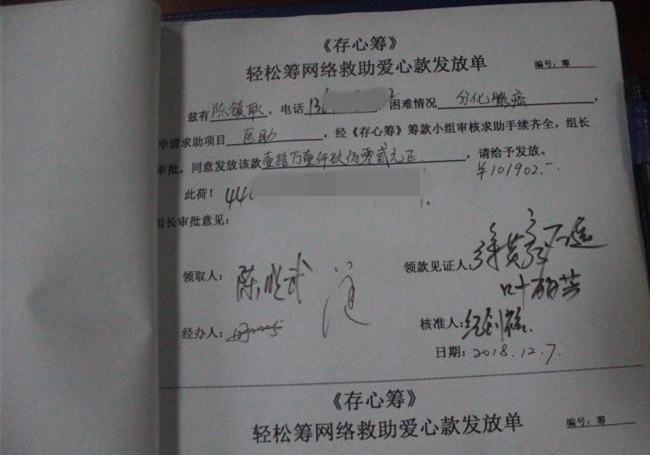 《存心筹》
轻松筹网络救助爱心款发放单
编号：筹
兹有陈镇耿，电话13 困难情况 分化腺癌，
申请求助项目 医助，经《存心筹》筹款小组审核求助手续齐全，组长
审批，同意发放该款壹拾万壹仟玖佰零贰元正，请给予发放。
¥101902.-
此荷！440
组长审批意见：
领取人：陈 武
领款见证人：
叶丽芳
经办人：
核准人：
日期：2018.12.7.
《存心筹》
轻松筹网络救助爱心款发放单
编号：筹